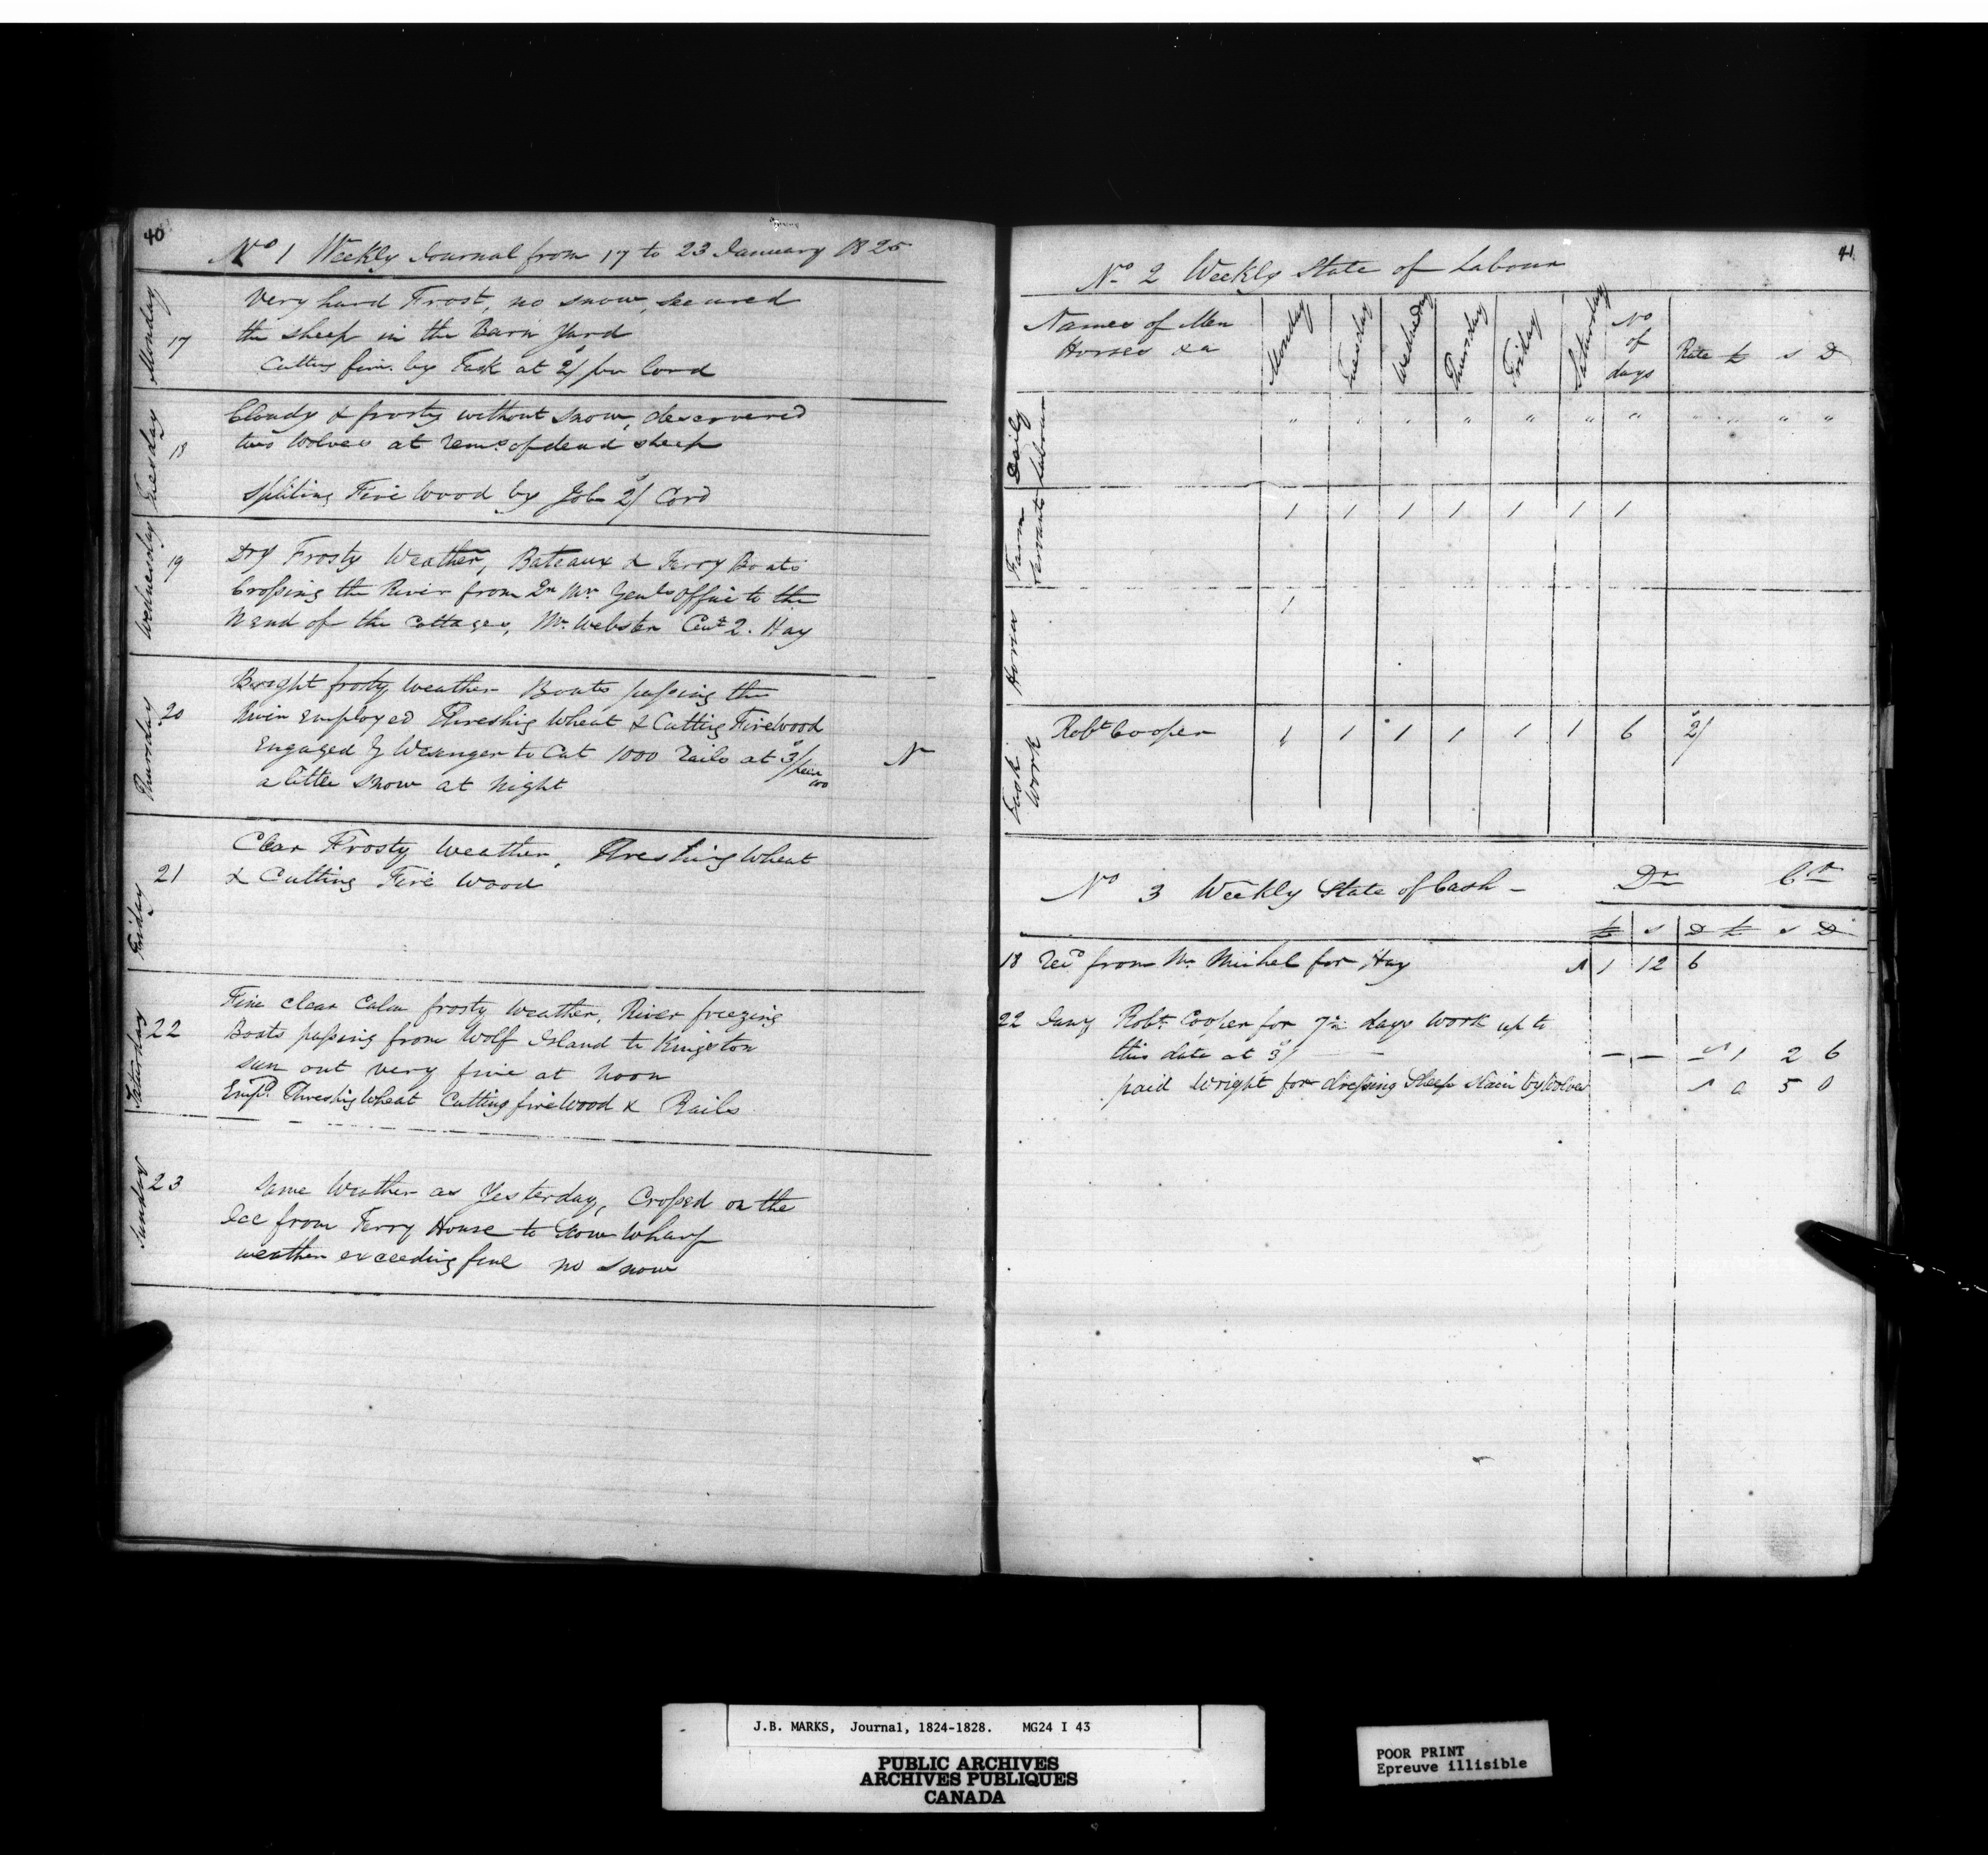 40
No 1 Weekly Journal from 17 to 23 January 1825
Monday 17
Very hard Frost, no snow, secured
the sheep in the Barn Yard
Cutting fire. by Task at 2/ per Cord
Tuesday 18
Cloudy & frosty without snow, descovered
two Wolves at rems. of dead sheep
Spliting Fire Wood by Job 2/ Cord
Wednesday 19
Dry Frosty Weather, Bateaux & Ferry Boats
Crossing the River from Qr Mr Genls Office to the
N end of the Cottages, Mr Webster Cwt 2. Hay
Thursday 20
Bright frosty weather Boats passing the
River Employed Threshig Wheat & Cuttig Firewood
Engaged Wesenger to Cut 1000 rails at 3/ per 100
N
a little snow at Night
Friday 21
Clear Frosty Weather, Threshing Wheat
& Cutting Fire Wood
Saturday 22
Fine clear Calm frosty Weather, River freezing
Boats passing from Wolf Island to Kingston
sun out very fine at Noon
Empd. Threshig Wheat Cutting firewood & Rails
Sunday 23
Same Weather as Yesterday, Crossed on the
Ice from Ferry House to Wharf
weather exceeding fine no snow
41
No 2 Weekly State of Labour
Names of Men
Horses &a
Monday Tuesday Wednesday Thursday Friday Saturday No of days Rate £ s D
Daily Labour " " " " " " " " " " "
Farm Servants 1 1 1 1 1 1 1
Horses 1
Task Work Robt Cooper " 1 1 1 1 1 6 2/
No 3 Weekly State of Cash - Dr Cr
£ s D £ s D
18 Recd from Mr Michel for Hay 1 12 6
22 Jany Robt Cooper for 7½ days work up to
this date at 3/ — — — — 1 2 6
paid Wright for dressing Sheep slain by Wolves 0 5 0
J.B. MARKS, Journal, 1824-1828. MG24 I 43
PUBLIC ARCHIVES
ARCHIVES PUBLIQUES
CANADA
POOR PRINT
Epreuve illisible